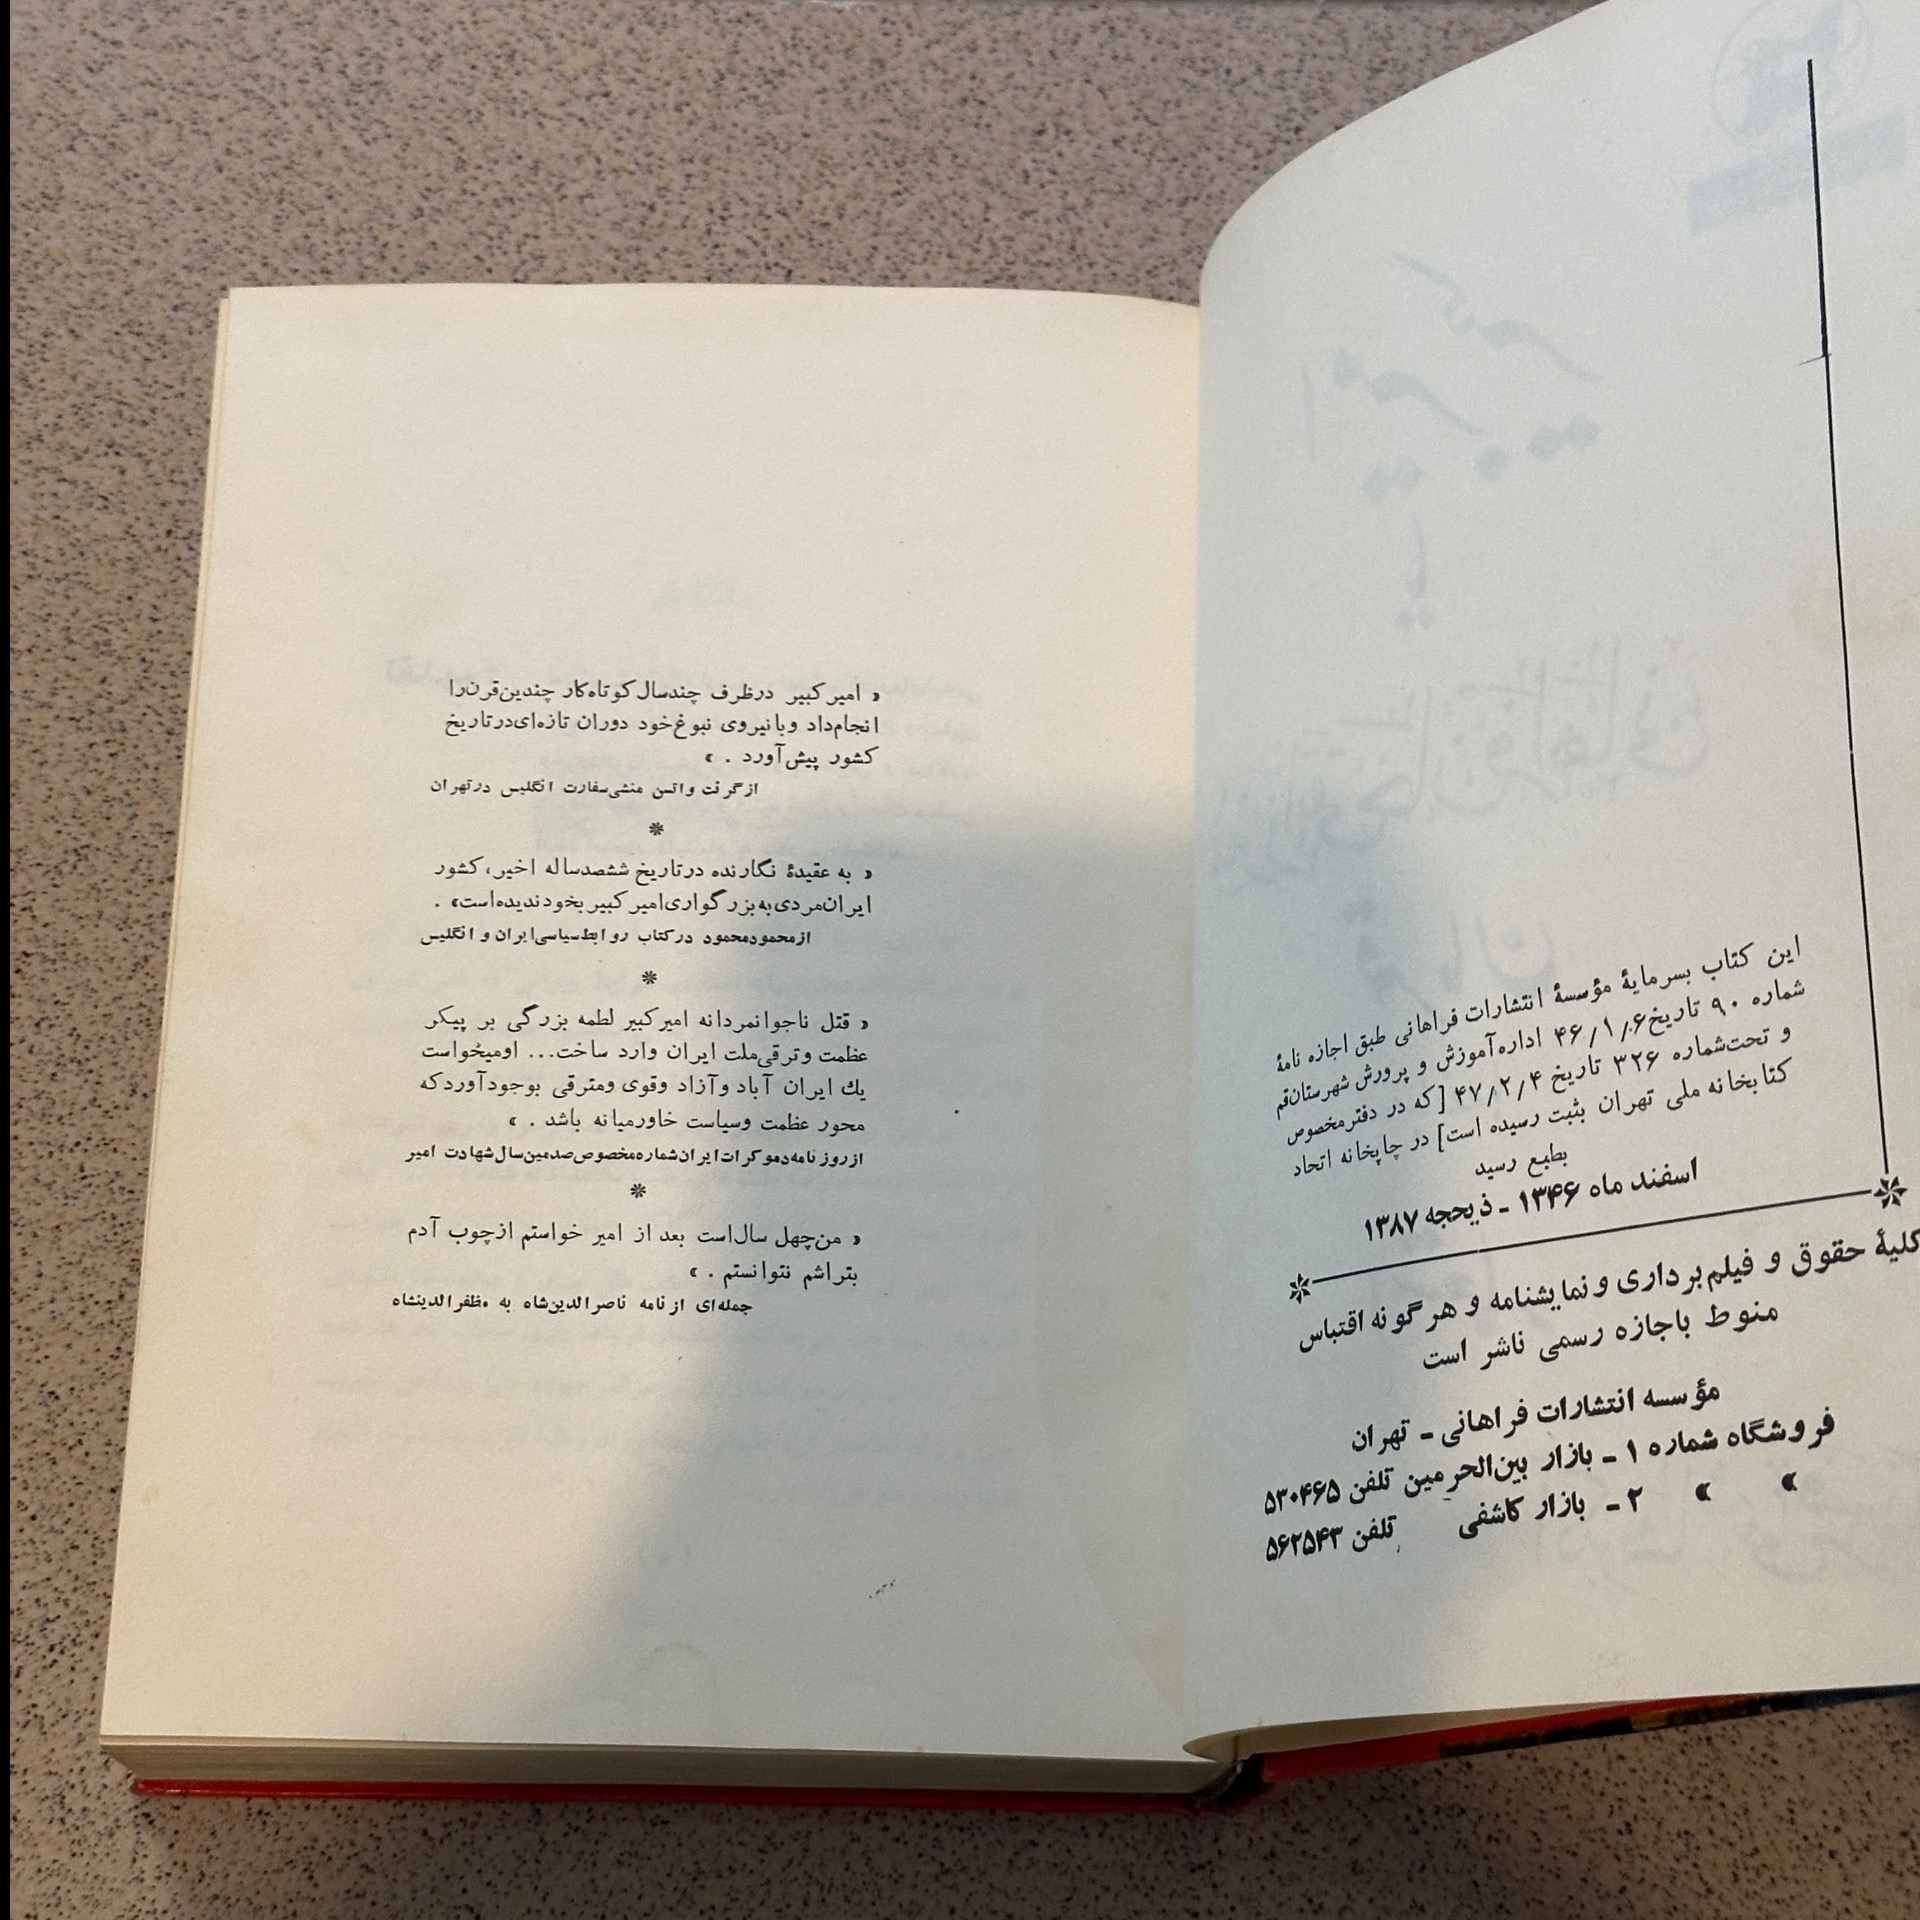 این کتاب بسرمایهٔ مؤسسهٔ انتشارات فراهانی طبق اجازه نامهٔ
شماره ۹۰ تاریخ ۴۶/۱/۶ اداره‌آموزش و پرورش شهرستان‌قم
و تحت‌شماره ۳۲۶ تاریخ ۴۷/۲/۴ [که در دفتر مخصوص
کتابخانه ملی تهران بثبت رسیده است] در چاپخانه اتحاد
بطبع رسید
اسفند ماه ۱۳۴۶ ـ ذیحجه ۱۳۸۷
کلیهٔ حقوق و فیلم‌برداری و نمایشنامه و هرگونه اقتباس
منوط باجازه رسمی ناشر است
مؤسسه انتشارات فراهانی ـ تهران
فروشگاه شماره ۱ ـ بازار بین‌الحرمین تلفن ۵۳۰۴۶۵
» » ۲ ـ بازار کاشفی تلفن ۵۶۲۵۴۳
« امیر کبیر درظرف چندسال کوتاه‌کار چندین‌قرن‌را
انجام‌داد وبا نیروی نبوغ‌خود دوران تازه‌ای‌درتاریخ
کشور پیش‌آورد . »
از گرنت واتسن منشی‌سفارت انگلیس درتهران
*
« به عقیدهٔ نگارنده درتاریخ ششصدساله اخیر، کشور
ایران‌مردی‌به‌بزرگواری‌امیر کبیر بخودندیده‌است» .
از محمودمحمود درکتاب روابط‌سیاسی‌ایران و انگلیس
*
« قتل ناجوانمردانه امیرکبیر لطمه بزرگی بر پیکر
عظمت وترقی‌ملت ایران وارد ساخت... اومیخواست
یك ایران آباد وآزاد وقوی ومترقی بوجودآوردکه
محور عظمت وسیاست خاورمیانه باشد . »
از روزنامه‌دموکرات‌ایران‌شماره‌مخصوص‌صدمین‌سال‌شهادت امیر
*
« من‌چهل سال‌است بعد از امیر خواستم ازچوب آدم
بتراشم نتوانستم . »
جمله‌ای از نامه ناصرالدین‌شاه به مظفرالدینشاه